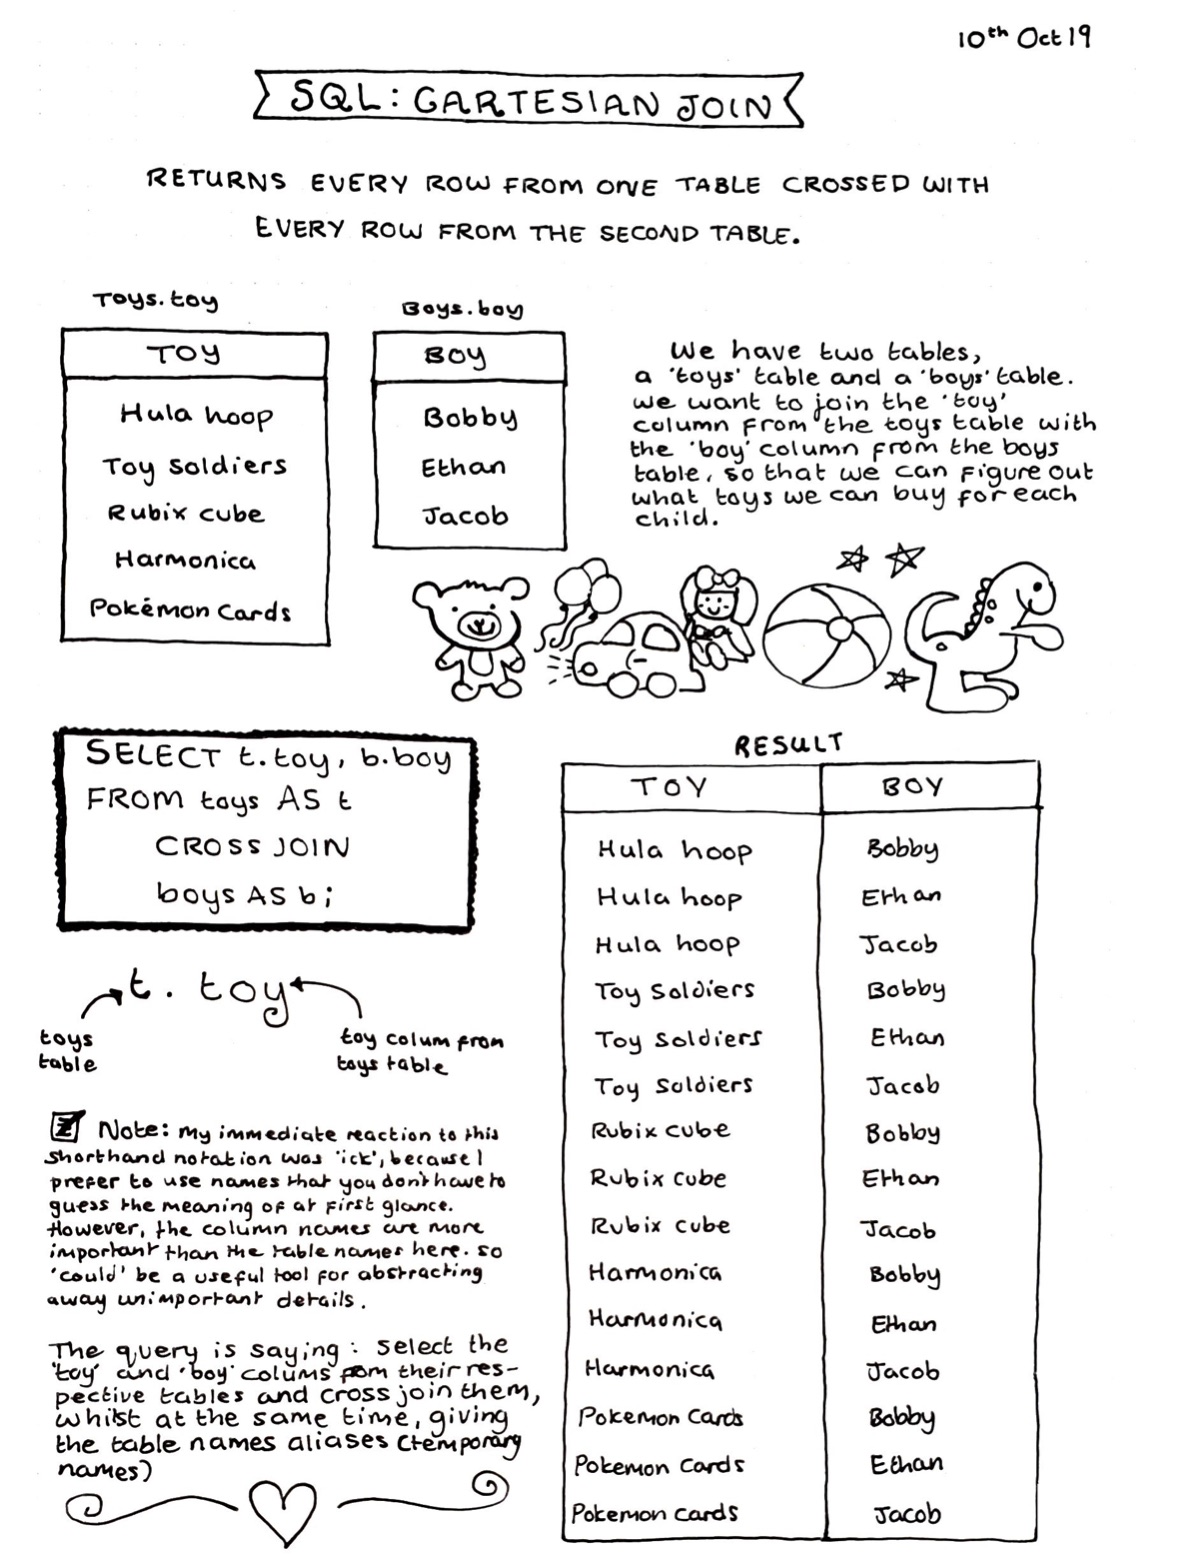 10th Oct 19
SQL: CARTESIAN JOIN
RETURNS EVERY ROW FROM ONE TABLE CROSSED WITH
EVERY ROW FROM THE SECOND TABLE.
Toys.toy
TOY
Hula hoop
Toy Soldiers
Rubix cube
Harmonica
Pokémon Cards
Boys.boy
BOY
Bobby
Ethan
Jacob
We have two tables,
a 'toys' table and a 'boys' table.
We want to join the 'toy'
column from the toys table with
the 'boy' column from the boys
table, so that we can figure out
what toys we can buy for each
child.
SELECT t.toy, b.boy
FROM toys AS t
CROSS JOIN
boys AS b;
t. toy
toys
table
toy colum from
toys table
Note: My immediate reaction to this
shorthand notation was 'ick', because I
prefer to use names that you don't have to
guess the meaning of at first glance.
However, the column names are more
important than the table names here. so
'could' be a useful tool for abstracting
away unimportant details.
The query is saying: select the
'toy' and 'boy' colums from their res-
pective tables and cross join them,
whilst at the same time, giving
the table names aliases (temporary
names)
RESULT
TOY BOY
Hula hoop Bobby
Hula hoop Ethan
Hula hoop Jacob
Toy Soldiers Bobby
Toy Soldiers Ethan
Toy Soldiers Jacob
Rubix cube Bobby
Rubix cube Ethan
Rubix cube Jacob
Harmonica Bobby
Harmonica Ethan
Harmonica Jacob
Pokemon Cards Bobby
Pokemon Cards Ethan
Pokemon Cards Jacob